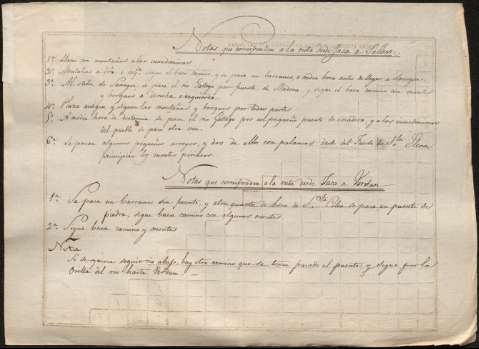 Notas que corresponden a la ruta desde Jaca a Sallen.
1ª Llano sin montañas a las inmediaciones
2ª Montañas a dra. e izqª. sigue el buen camino y se pasa un barranco, a media hora antes de llegar a
3ª Al salir de se pasa el rio Gallego por puente de Madera, y sigue el buen camino con cuestas
y bosques a derecha e izquierda.
4ª Casa antigua y siguen las montañas y bosques por todas partes
5ª A media hora de distancia se pasa el rio Gallego por un pequeño puente de madera, y a las inmediaciones
del pueblo se pasa otro con
6ª Se pasan algunos pequeños arroyos, y dos de ellos con desde el Fuerte de Sta. Elena
principian los montes
Notas que corresponden a la ruta desde Jaca a Verdun
1ª Se pasa un barranco sin puente, y al quarto de hora de Sta. Cilia se pasa un puente de
piedra, sigue buen camino con algunas cuestas.
2ª Sigue buen camino y cuestas
Nota
Si se quiere seguir rio abajo, hay otro camino que se toma pasado el puente y sigue por la
Orilla del rio hasta Verdun